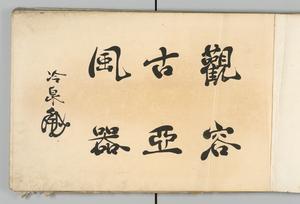 觀容
古亞
風器
冷泉